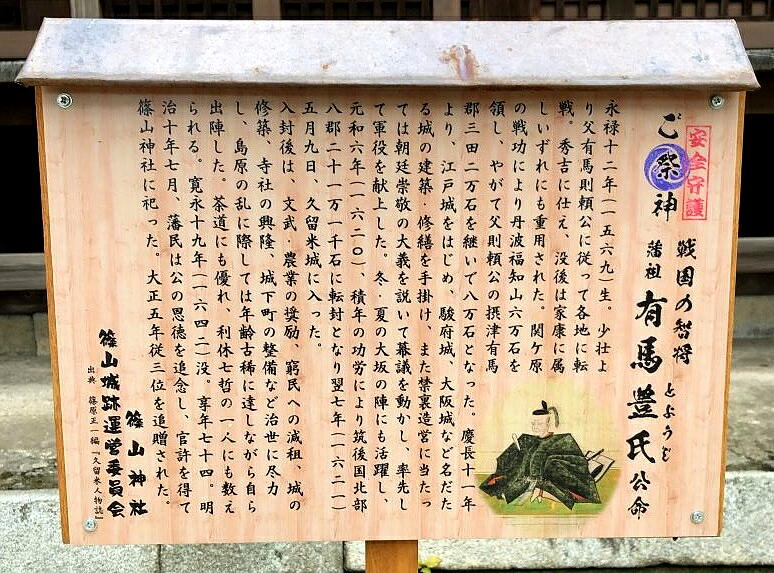 安全守護
ご祭神
戦国の智将
藩祖 有馬豊氏公命
とようじ
永禄十二年(一五六九)生。少壮よ
り父有馬則頼公に従って各地に転
戦。秀吉に仕え、没後は家康に属
しいずれにも重用された。関ケ原
の戦功により丹波福知山六万石を
領し、やがて父則頼公の摂津有馬
郡三田二万石を継いで八万石となった。慶長十一年
より、江戸城をはじめ、駿府城、大阪城など名だた
る城の建築・修繕を手掛け、また禁裏造営に当たっ
ては朝廷崇敬の大義を説いて幕議を動かし、率先し
て軍役を献上した。冬・夏の大坂の陣にも活躍し、
元和六年(一六二〇)、積年の功労により筑後国北部
八郡二十一万一千石に転封となり翌七年(一六二一)
五月九日、久留米城に入った。
入封後は、文武・農業の奨励、窮民への減租、城の
修築、寺社の興隆、城下町の整備など治世に尽力
し、島原の乱に際しては年齢古稀に達しながら自ら
出陣した。茶道にも優れ、利休七哲の一人にも数え
られる。寛永十九年(一六四二)没。享年七十四。明
治十年七月、藩民は公の恩徳を追念し、官許を得て
篠山神社に祀った。大正五年従三位を追贈された。
篠山神社
篠山城跡運営委員会
出典 篠原正一編『久留米人物誌』